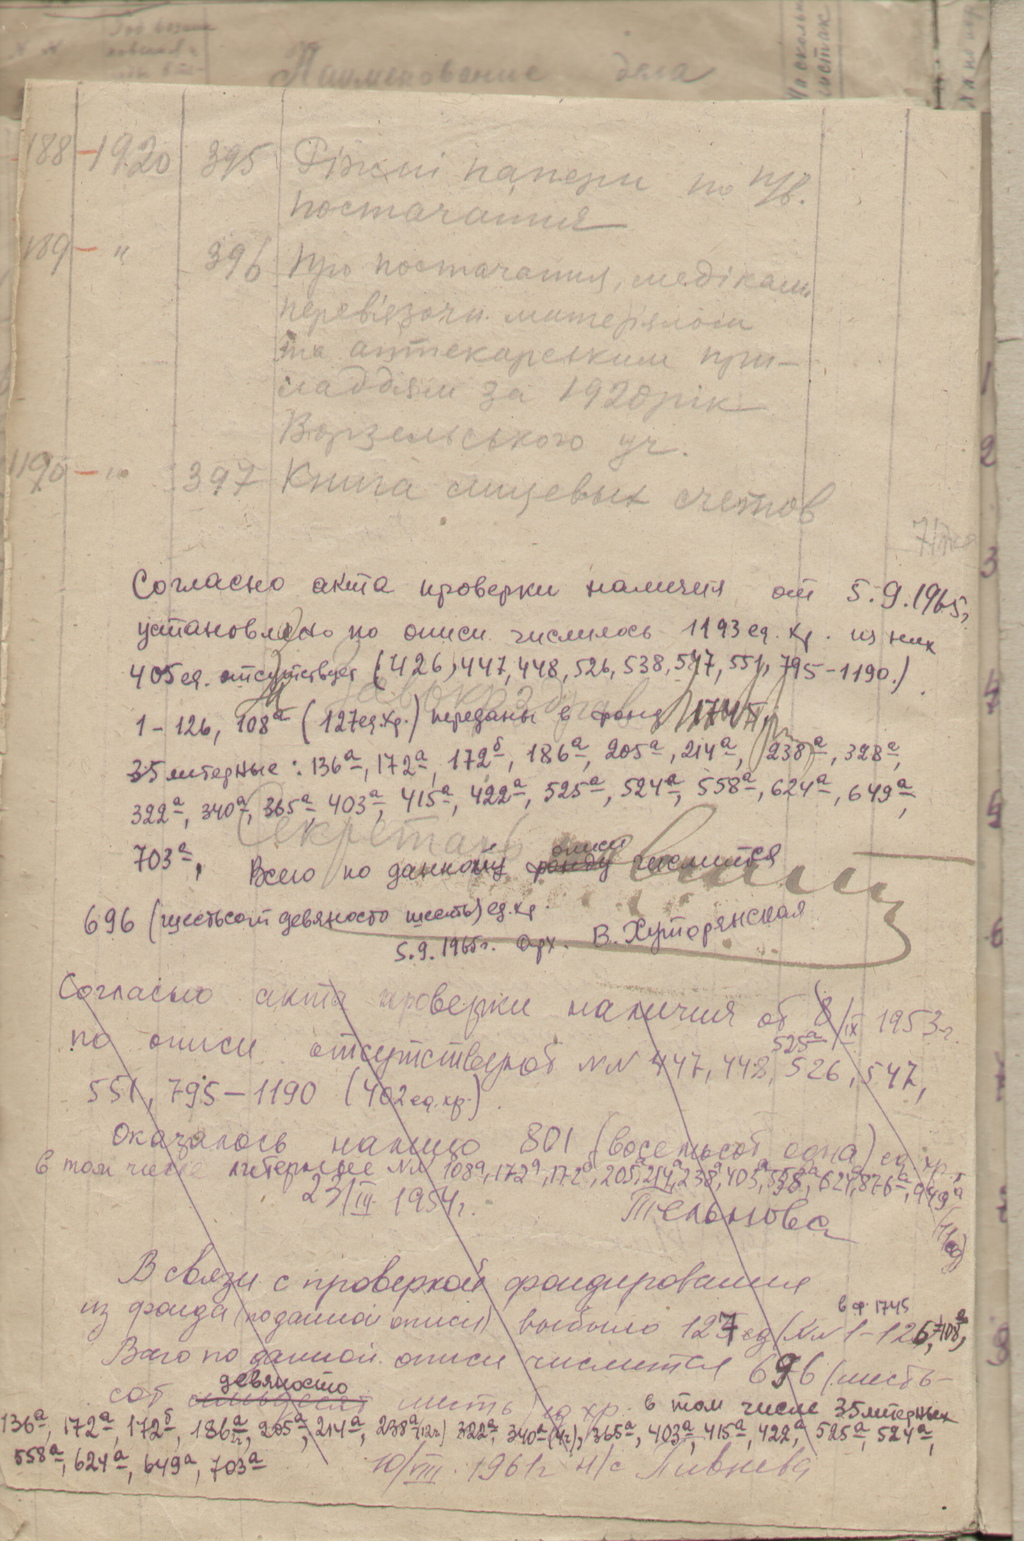 Наименование дела
188 – 1920 395 Ріжні папери по
постачання
189 – " 396 Про постачання, медікам.
перев'язочн. матеріялом
та аптекарським при-
ладдям за 1920 рік
Ворзельського уч.
1190 – " 397 Книга лицевых счетов
Согласно акта проверки наличия от 5.9.1965г.
установлено по описи числилось 1193 ед. хр. из них
405 ед. отсутствует (426, 447, 448, 526, 538, 547, 551, 795-1190.)
1-126, 108а (127 ед.хр.) переданы в фонд 1745
35 литерные: 136а, 172а, 172б, 186а, 205а, 214а, 238а, 328а,
322а, 340а, 365а, 403а, 415а, 422а, 525а, 524а, 558а, 624а, 649а,
Секретарь
703а, Всего по данному фонду описи числится
696 (шестьсот девяносто шесть) ед. хр.
5.9.1965г. арх. В. Хуторянская
Согласно акта проверки наличия от 8/IX 1953 г.
по описи отсутствуют NN 447, 448, 525а, 526, 547,
551, 795-1190 (402 ед. хр.)
Оказалось налицо 801 (восемьсот одна) ед. хр.
в том числе литерные NN 108а, 172а, 172а, 205, 214а, 238а, 403а, 558а, 624, 876а, 949а
23/III 1954г. Тельнова
В связи с проверкой фондирования
из фонда (по данной описи) выбыло 127 ед (NN 1-126, 108а,
в ф. 1745
Всего по данной описи числится 696 (шесть-
сот девяносто шесть) ед. хр. в том числе 35 литерных
136а, 172а, 172б, 186а, 205а, 214а, 238а, 322а, 340а, 365а, 403а, 415а, 422а, 525а, 524а,
558а, 624а, 649а, 703а 10/VIII 1961г н/с Ливнева